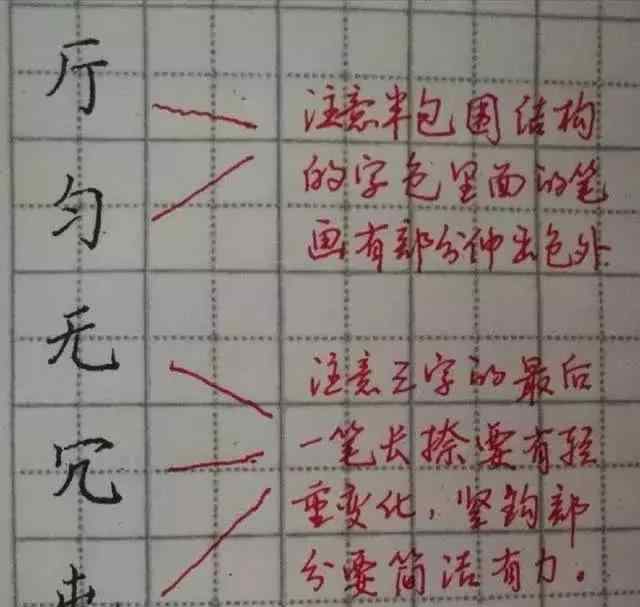 厅
匀
无
冗
注意半包围结构
的字包里面的笔
画有部分伸出包外
注意三字的最后
一笔长捺要有轻
重变化，竖钩部
分要简洁有力。